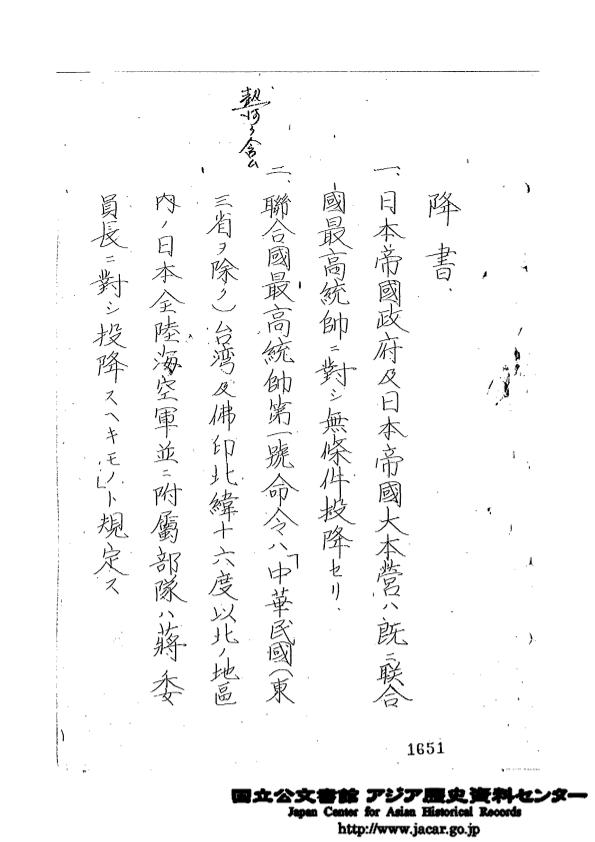 降書、
一、日本帝國政府及日本帝國大本營ハ既ニ联合
國最高統帥ニ對シ無條件投降セリ、
二、聯合國最高統帥第一號命令ハ「中華民國（東
三省ヲ除ク）台湾及佛印北緯十六度以北ノ地區
内ノ日本全陸海空軍並ニ附屬部隊ハ蔣委
員長ニ對シ投降スヘキモノ」ト規定ス
ヲ含ム
1651
国立公文書館 アジア歴史資料センター
Japan Center for Asian Historical Records
http://www.jacar.go.jp